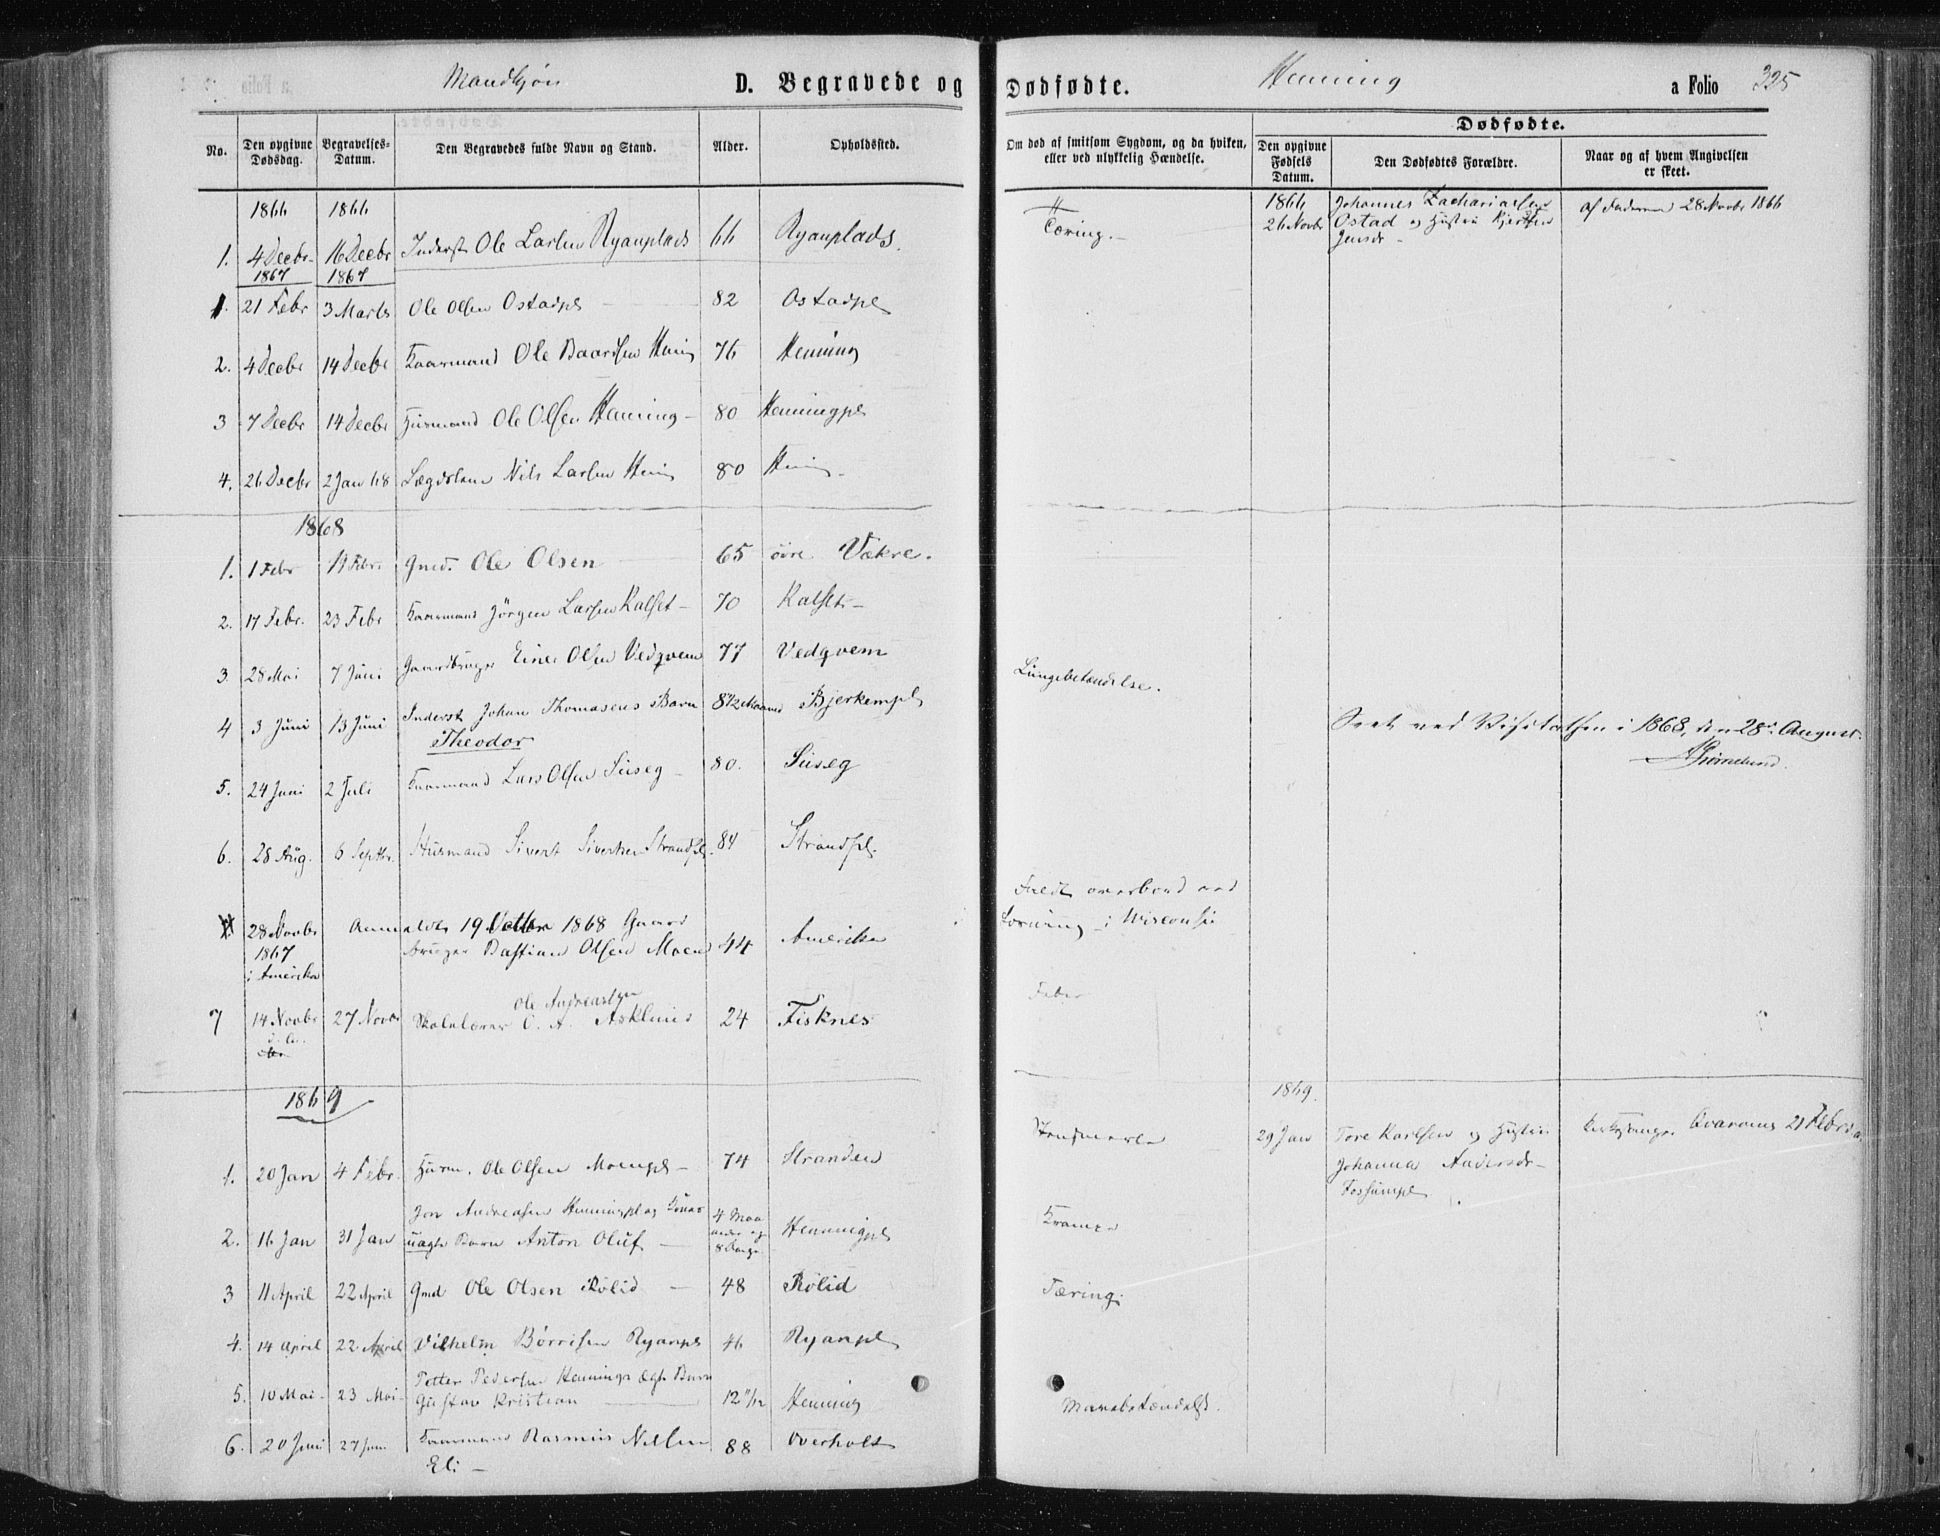 Mandkjøn D. Begravede og Dødfødte. Henning a Folio 325
No. Den opgivne Dødsdag. Begravelses-Datum. Den Begravedes fulde Navn og Stand. Alder. Opholdssted. Om død af smitsom Sygdom, og da hvilken, eller ved ulykkelig Hændelse. Den opgivne Fødsels Datum. Den Dødfødtes Forældre. Naar og af hvem Angivelsen er skeet.
Dødfødte.
1866 1866
1. 4 Decbr 16 Decbr Inderst Ole Larsen Ryanplads 66 Ryanplads. Tæring.
1866 26 Novbr Johannes Zachariassen
Ostad og Hustru
Jensdr
af Faderen 28 Novbr 1866
1867 1867
1. 21 Febr 3 Marts Ole Olsen Ostadpl 82 Ostadpl
2. 4 Decbr 14 Decbr Kaarmand Ole Baardsen Hening 76 Henning
3 7 Decbr 14 Decbr Husmand Ole Olsen Henning 80 Henningpl
4. 26 Decbr 2 Jan 68 Lægdslem Nils Larsen Hening 80 Hening
1868
1. 1 Febr 19 Febr. Gmd. Ole Olsen 65 øvre Vækre.
2. 17 Febr. 23 Febr Kaarmand Jörgen Larsen Kalset 70 Kalset
3. 28 Mai 7 Juni Gaardbruger Einer Olsen Vedqvem 77 Vedqvem Lungebetændelse.
4 3 Juni 13 Juni Inderst Johan Thomasens Barn 8 1/2 Maaned Bjerkempl
Theodor
Seet ved Visitatsen i 1868, den 28de August.
5. 24 Juni 2 Juli Kaarmand Lars Olsen Suseg 80. Suseg
6. 28 Aug. 6 Septbr. Husmand Sivert Sivertsen Strandpl. 84 Strandpl.
28 Novbr Anmeldt 19 1868 Gaard Faldt overbord ved
1867 bruger Bastian Olsen Moen 44 Amerika i Wisconsin
i Amerika
Ole Andreassen
7 14 Novbr 27 Novbr Skolelærer O. A. 24 Fisknes Feber
1869
1869.
1. 20 Jan 4 Febr. Husm. Ole Olsen Moenspl 74 Stranden
29 Jan Tore Karlsen og Hustru
Johanna Andersdr
Fossumpl
Kirkesanger Qvarenes 21 Febr
Jon Andreasen Henningpl og
2. 16 Jan 31 Jan uægte Barn Anton Oluf 4 Maaneder og 8 Dage Henningpl Krampe
3 11 April 22 April Gmd Ole Olsen Rølid 48 Rølid Tæring.
4. 14 April 22 April Vilhelm Börrisen Ryanpl 46 Ryanpl
Petter Pedersen Hennings Ægte Barn
5. 10 Mai 23 Mai Gustav Kristian 12 11/12 Henning Mavebetændelse.
6. 20 Juni 27 Juni Kaarmand Rasmus Nilsen 88 Overholt
Eli